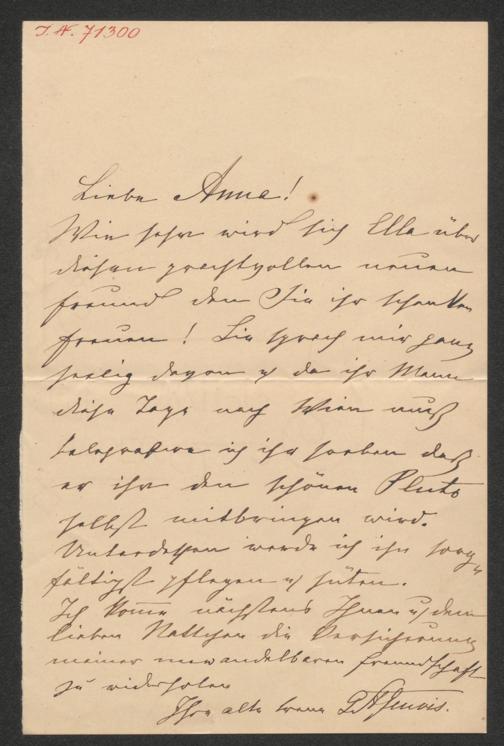 I.N. 71300
Liebe Anna!
Wie sehr wird sich Ella über
diesen prachtvollen neuen
Freund den Sie ihr schenken
freuen! Sie sprach mir ganz
seelig davon u da ihr Mann
diese Tage nach Wien muß
telegrafire ich ihr soeben daß
er ihr den schönen Pluto
selbst mitbringen wird.
Unterdessen werde ich ihn sorg"
fältigst pflegen u hüten.
Ich komme nächstens Ihnen u dem
lieben Nettchen die Versicherung
meiner unwandelbaren Freundschaft
zu widerholen
Ihre alte treue